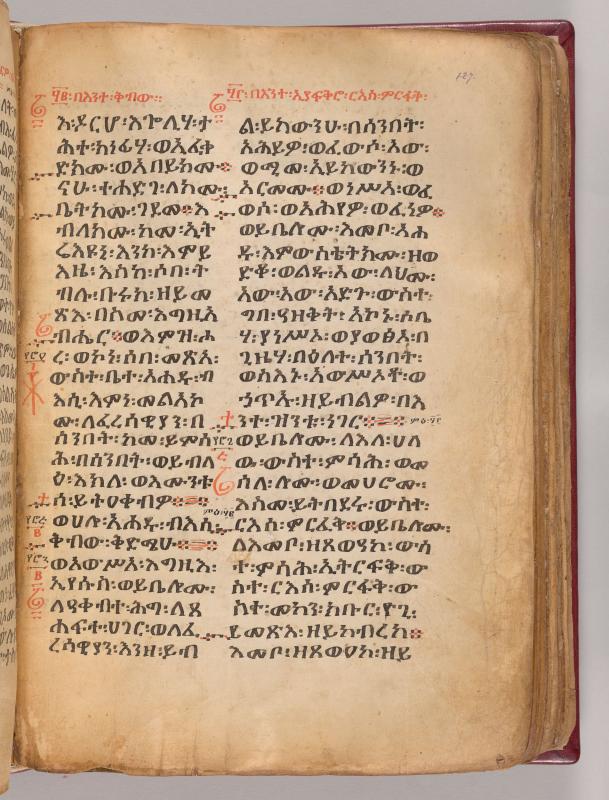 ፶፪፡በእንተ፡ቅብው።
እ፡ዶርሆ፡እጐሊሃ፡ተ
ሕተ፡ክነፊሃ፡ወኢፈቀ
ድክሙ፡ወአበይክሙ።
ናሁ፡ተሐድገ፡ለክሙ፡
ቤትክሙ፡ገዳመ።እ
ብለክሙ፡ከመ፡ኢት
ሬእዩኒ፡እንከ፡እምይ
እዜ፡እስከ፡ሶበ፡ት
ብሉ፡ቡሩክ፡ዘይመ
ጽእ፡በስመ፡እግዚአ
ብሔር።ወእምዝ፡ሖ
ረ፡ወኮነ፡ሶበ፡መጽአ፡
ውስተ፡ቤተ፡አሐዱ፡ብ
እሲ፡እምነ፡መልእክ
ሙ፡ለፈረሳዊያን፡በ
ሰንበት፡ከመ፡ይምሳ
ሕ፡በሰንበት፡ወይብላ
ዕ፡እክለ፡ወእሙንቱ
ሰ፡ይትዐቀብዎ።
ወሀሎ፡አሐዱ፡ብእሲ፡
ቅብው፡ቅድሜሁ።
ወአውሥአ፡እግዚእ፡
ኢየሱስ፡ወይቤሎሙ፡
ለዐቀብተ፡ሕግ፡ለጸ
ሐፍተ፡ሀገር፡ወለፈ
ረሳዊያን፡እንዘ፡ይብ
127
፶፫፡በእንተ፡እያፍቅሮ፡ርእሰ፡ምርፋቅ፡
ል፡ይከውንሁ፡በሰንበት፡
አሕይዎ፡ወፈውሶ፡አው፡
ወሚመ፡አይከውንኑ፡ወ
አርመሙ።ወነሥአ፡ወፈ
ወሶ፡ወአሕየዎ፡ወፈነዎ።
ወይቤሎሙ፡እመቦ፡አሐ
ዱ፡እምውስቴትክሙ፡ዘወ
ድቆ፡ወልዱ፡አው፡ላህሙ፡
አው፡አው፡አድጉ፡ውስተ፡
ግበ፡ዓዘቅት፡አኮኑ፡ሶቤ
ሃ፡ያነሥኦ፡ወያወፅኦ፡በ
ጊዜሃ፡በዕለተ፡ሰንበት፡
ወስእኑ፡አውሥኦቶ፡ወ
ኀጥኡ፡ዘይብልዎ፡በእ
ንተ፡ዝንቱ፡ነገር።
ወይቤሎሙ፡ለእለ፡ሀለ
ዉ፡ውስተ፡ምሳሕ፡ወመ
ሰለ፡ሎሙ፡ወመሀሮሙ።
እስመ፡ይትበደሩ፡ውስተ፡
ርእሰ፡ምርፈቅ።ወይቤሎሙ፡
ለእመቦ፡ዘጸውዓከ፡ውስ
ተ፡ምሳሕ፡ኢትርፍቅ፡ው
ስተ፡ርእሰ፡ምርፋቅ፡ው
ስተ፡መካን፡ክቡር፡ዮጊ፡
ይመጽእ፡ዘይከብረከ።
እመቦ፡ዘጸውዐከ፡ዘይ